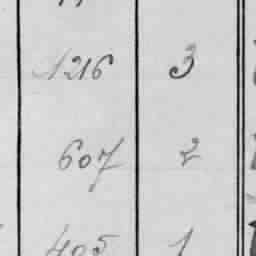 1216 3
607 2
405 1